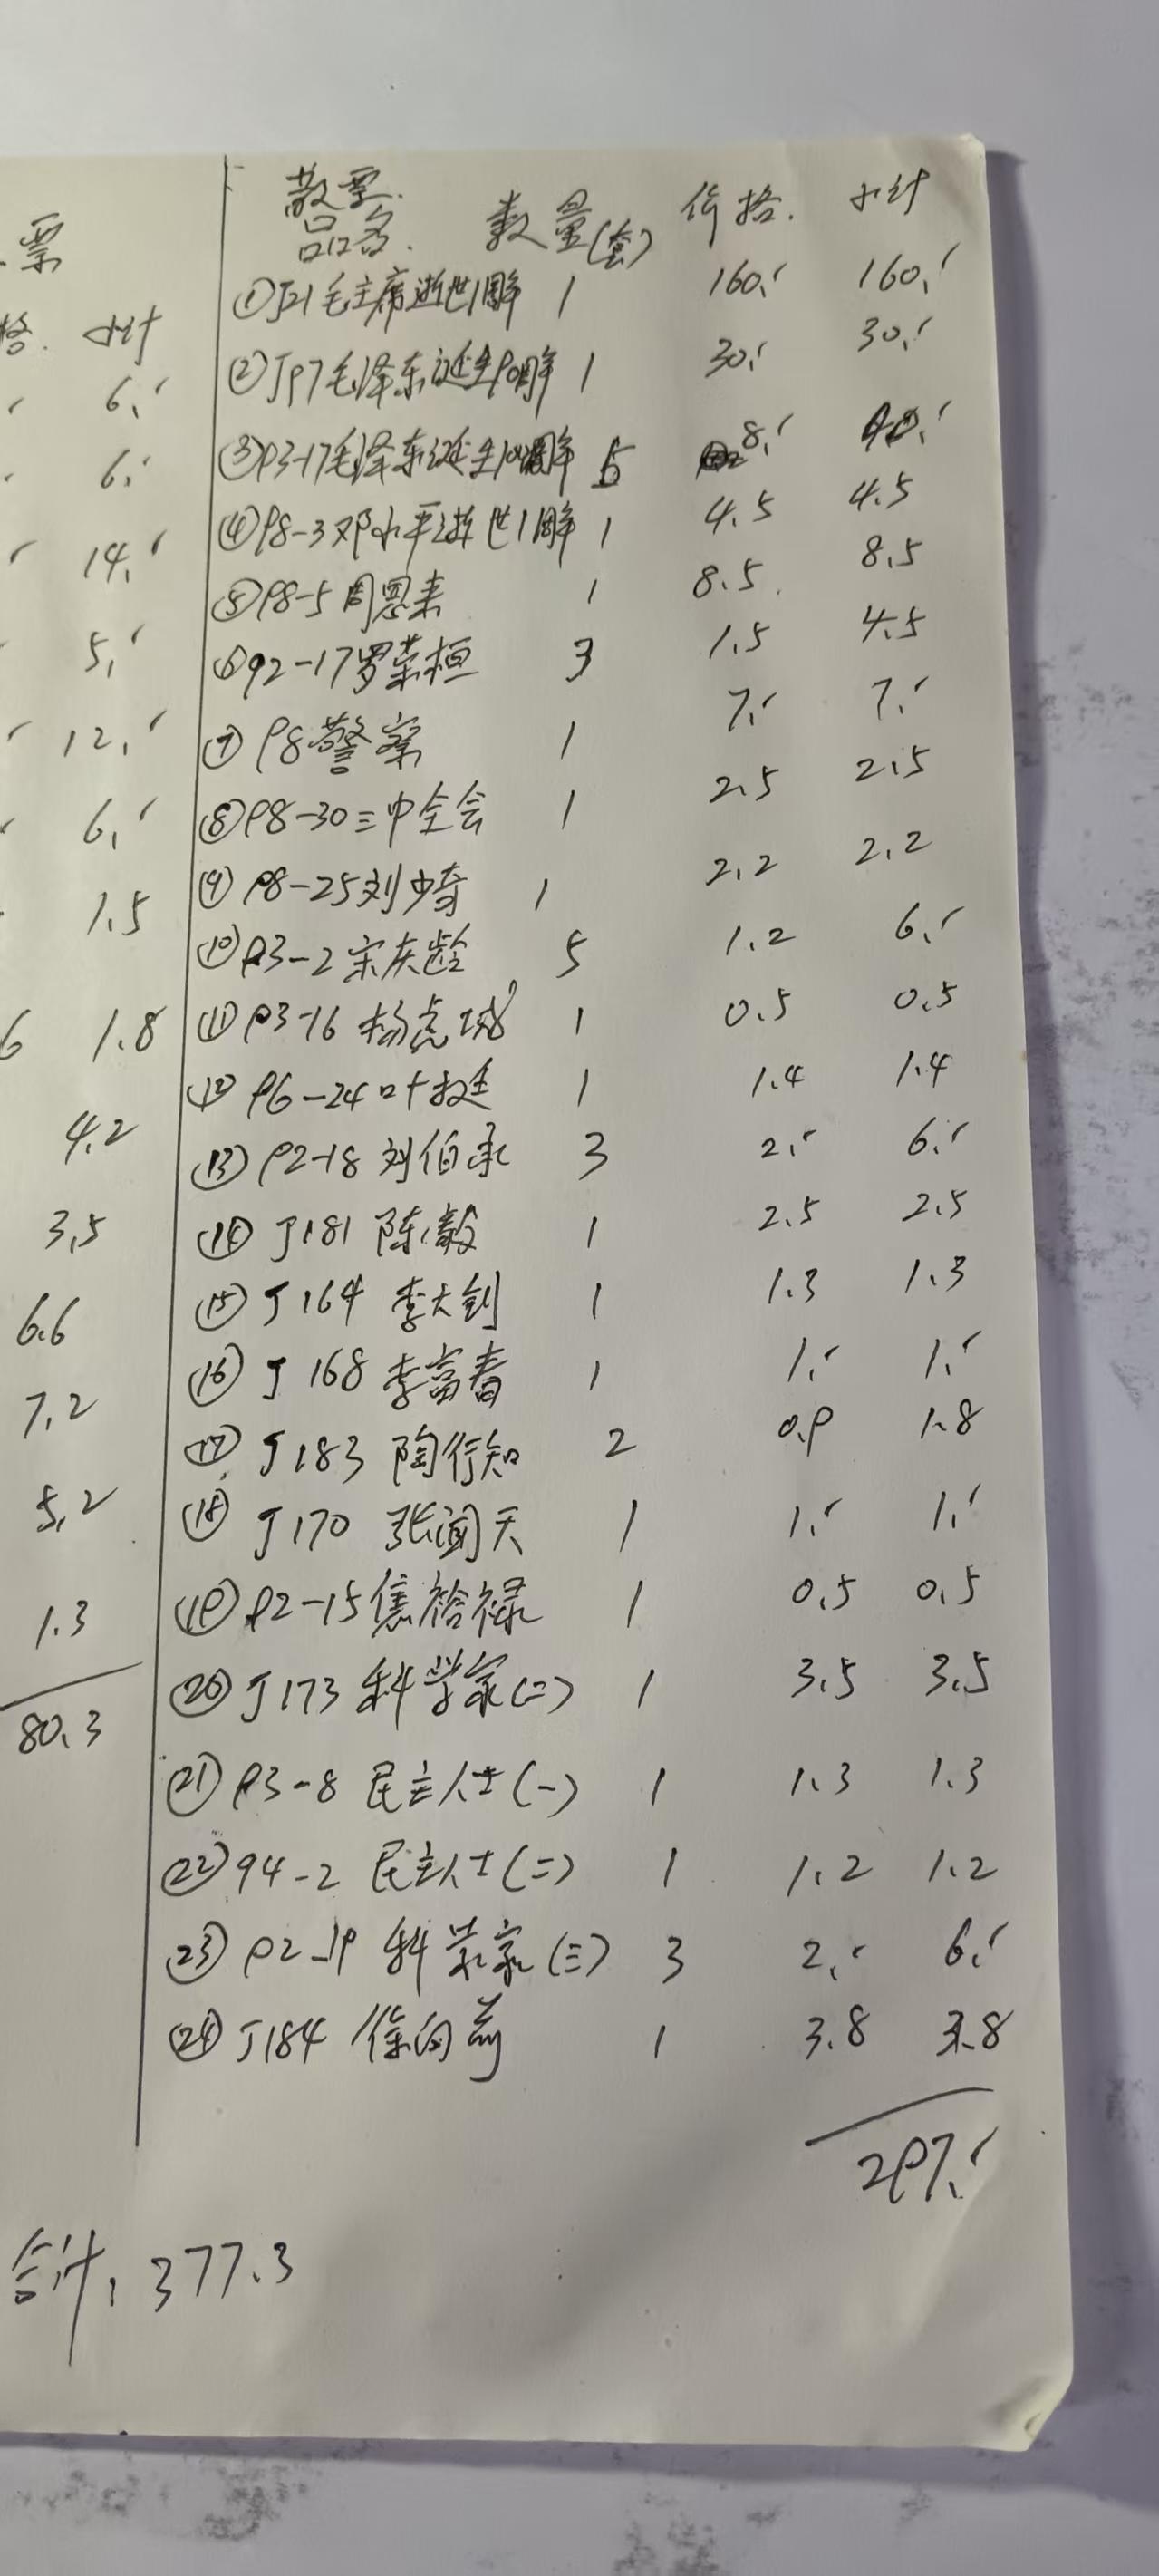 票
格. 小计
6.
6.
14.
5.
12.
6.
1.5
6 1.8
4.2
3.5
6.6
7.2
5.2
1.3
80.3
散票.
品名. 数量(套) 价格. 小计
①J21毛主席逝世1周年 1 160. 160.
②J97毛泽东诞生90周年 1 30. 30.
③93-17毛泽东诞生100周年 5 8. 40.
④98-3邓小平逝世1周年 1 4.5 4.5
⑤98-5周恩来 1 8.5 8.5
⑥92-17罗荣桓 3 1.5 4.5
⑦98警察 1 7. 7.
⑧98-30三中全会 1 2.5 2.5
⑨98-25刘少奇 1 2.2 2.2
⑩93-2宋庆龄 5 1.2 6.
⑪93-16杨虎城 1 0.5 0.5
⑫96-24叶挺 1 1.4 1.4
⑬92-18刘伯承 3 2. 6.
⑭J181陈毅 1 2.5 2.5
⑮J164李大钊 1 1.3 1.3
⑯J168李富春 1 1. 1.
⑰J183陶行知 2 0.9 1.8
⑱J170张闻天 1 1. 1.
⑲92-15焦裕禄 1 0.5 0.5
⑳J173科学家(二) 1 3.5 3.5
㉑93-8民主人士(一) 1 1.3 1.3
㉒94-2民主人士(二) 1 1.2 1.2
㉓92-19科学家(三) 3 2. 6.
㉔J184徐向前 1 3.8 3.8
297.
合计: 377.3